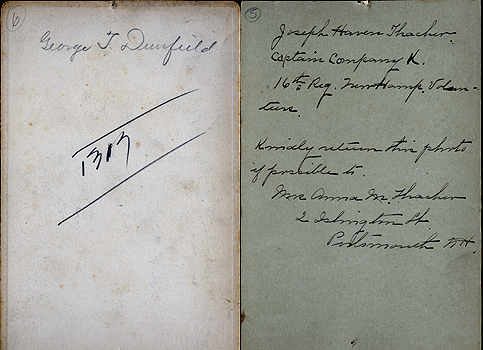 6
George T. Dunfield
1317
5
Joseph Haven Thacher.
Captain Company K.
16th Reg. New Hamp. Volun-
teers.
Kindly return this photo
if possible to
Mrs Anna M. Thacher
2 Islington St.
Portsmouth N.H.